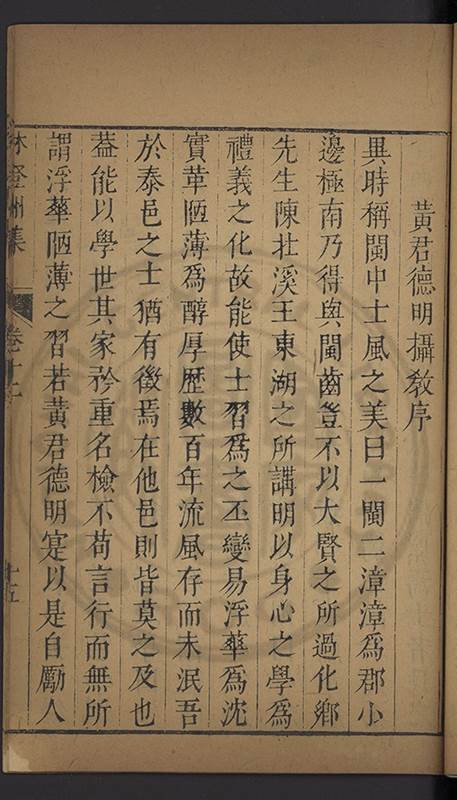 黃君德明攝教序
異時稱閩中士風之美曰一閩二漳漳為郡小
邊極南乃得與閩齒豈不以大賢之所過化鄉
先生陳壯溪王東湖之所講明以身心之學為
禮義之化故能使士習為之丕變易浮華為沈
實革陋薄為醇厚歷數百年流風存而未泯吾
於泰邑之士猶有徵焉在他邑則皆莫之及也
葢能以學世其家矜重名檢不苟言行而無所
謂浮華陋薄之習若黃君德明寔以是自勵人
林登州集
卷十二
十五